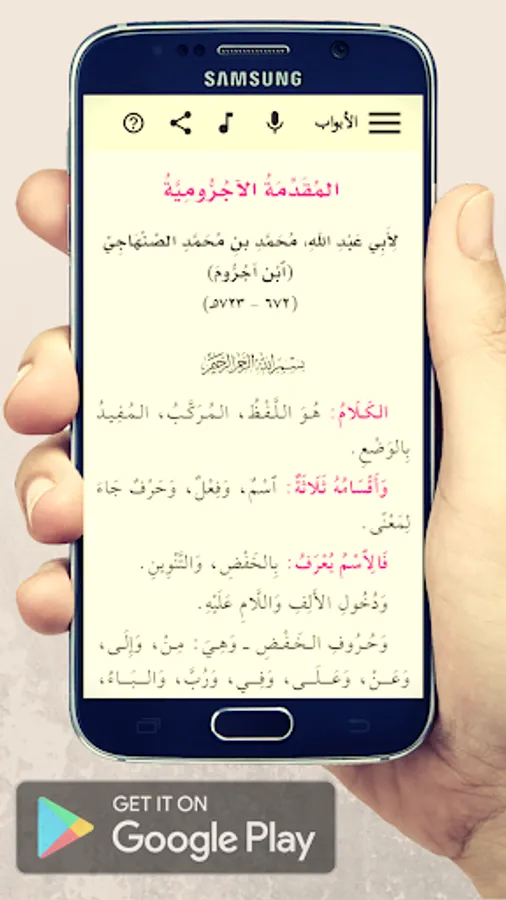 SAMSUNG
الأبواب
المُقَدِّمَةُ الآجُرُّومِيَّةُ
لِأَبِي عَبْدِ اللهِ، مُحَمَّدِ بنِ مُحَمَّدٍ الصِّنْهَاجِيِّ
(ٱبْنِ آجُرُّومَ)
(٦٧٢ - ٧٢٣هـ)
بسم الله الرحمن الرحيم
الكَلَامُ: هُوَ اللَّفْظُ، المُرَكَّبُ، المُفِيدُ
بِالوَضْعِ.
وَأَقْسَامُهُ ثَلَاثَةٌ: ٱسْمٌ، وَفِعْلٌ، وَحَرْفٌ جَاءَ
لِمَعْنًى.
فَالِٱسْمُ يُعْرَفُ: بِالخَفْضِ، وَالتَّنْوِينِ.
وَدُخُولِ الأَلِفِ وَاللَّامِ عَلَيْهِ.
وَحُرُوفِ الخَفْضِ ـ وَهِيَ: مِنْ، وَإِلَى،
وَعَنْ، وَعَلَى، وَفِي، وَرُبَّ، وَالبَاءُ،
GET IT ON
Google Play